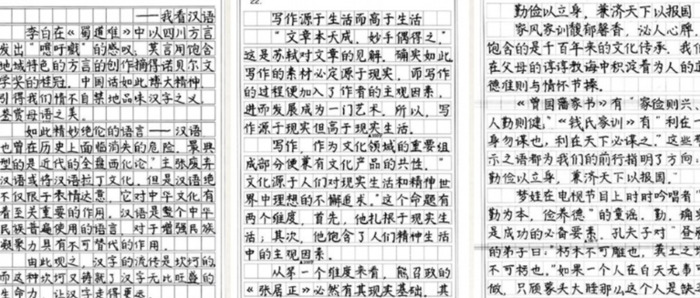 ——我看汉语
李白在《蜀道难》中以四川方言
发出“噫吁戏”的感叹，莫言用饱含
地域特色的方言的创作摘得诺贝尔文
学奖的桂冠，中国话如此博大精神，
引得我们情不自禁地品味汉字之义，
鉴赏母语之美。
如此精妙绝伦的语言——汉语
也曾在历史上面临消失的危险，最典
型的是近代的“全盘西化论”主张废弃
汉语或将汉语拉丁文化，但是汉语绝
不仅限于表情达意，它对中华文化有
着至关重要的作用，汉语是整个中华
民族普遍使用的语言，对于增强民族
凝聚力具有不可替代的作用。
由此观之，汉字的流传是坎坷的
而这种坎坷又铸就了汉字无比旺盛的
生命力，让汉字走得更远
22.
写作源于生活而高于生活
“文章本天成，妙手偶得之。”
这是苏轼对文章的见解，确实如此
写作的素材必定源于现实，而写作
的过程便加入了作者的主观因素，
进而发展成为一门艺术，所以，写
作源于现实但高于现实生活。
写作，作为文化领域的重要组
成部分便兼有文化产品的共性，“
文化源于人们对现实生活和精神世
界中理想的不懈追求。”这个命题有
两个维度，首先，他扎根于现实生
活；其次，他饱含了人们精神生活
中的主观因素。
从第一个维度来看，熊召政的
《张居正》必然有其现实基础，其
勤俭以立身，兼济天下以报国
家风家训馥郁馨香，沁人心脾，
饱含的是千百年来的文化传承，我们
在父母的谆谆教诲中积淀着为人的道
德准则与情怀节操。
《曾国藩家书》有“家俭则兴，
人勤则健，”《钱氏家训》有“利在一
身勿谋也，利在天下必谋之，”这些
示之语都为我们的前行指明了方向
勤俭以立身，兼济天下以报国。”
梦娃在电视节目上时时吟唱着
勤为本，俭养德”的童谣，勤，确
是成功的必备要素，孔夫子对“昼
的弟子曰：“朽木不可雕也，粪土之
不可杇也。”如果一个人在白天无事可
做，只顾蒙头大睡那么这个人是